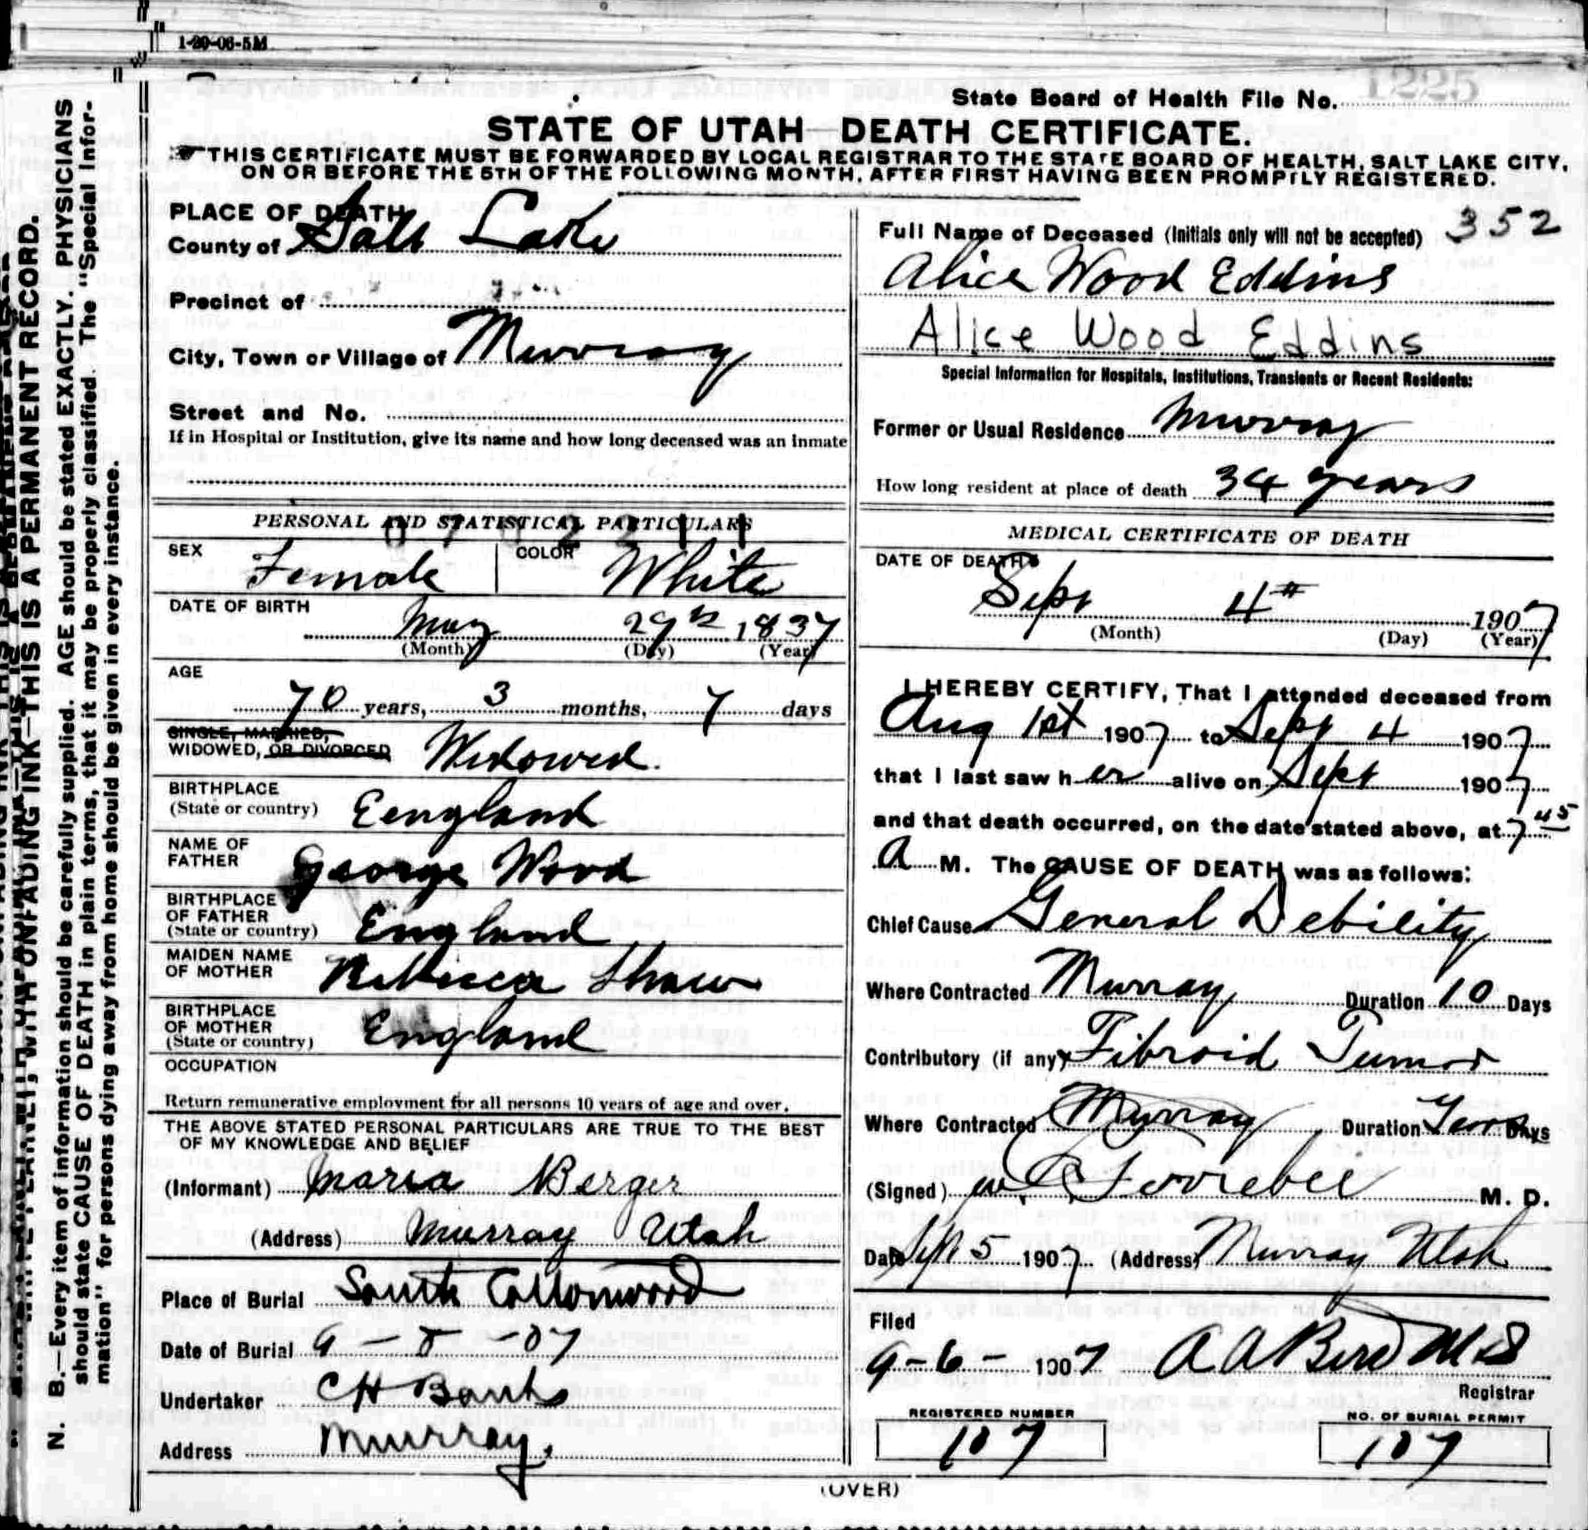 1-20-06-5M
1225
State Board of Health File No.
STATE OF UTAH—DEATH CERTIFICATE.
THIS CERTIFICATE MUST BE FORWARDED BY LOCAL REGISTRAR TO THE STATE BOARD OF HEALTH, SALT LAKE CITY,
ON OR BEFORE THE 5TH OF THE FOLLOWING MONTH, AFTER FIRST HAVING BEEN PROMPTLY REGISTERED.
N. B.—Every item of information should be carefully supplied. AGE should be stated EXACTLY. PHYSICIANS
should state CAUSE OF DEATH in plain terms, that it may be properly classified. The "Special Infor-
mation" for persons dying away from home should be given in every instance.
WITH UNFADING INK—THIS IS A PERMANENT RECORD.
PLACE OF DEATH
County of Salt Lake
Precinct of
City, Town or Village of Murray
Street and No.
If in Hospital or Institution, give its name and how long deceased was an inmate
PERSONAL AND STATISTICAL PARTICULARS
SEX Female COLOR White
DATE OF BIRTH
May 29th 1837
(Month) (Day) (Year)
AGE
70 years, 3 months, 7 days
SINGLE, MARRIED,
WIDOWED, OR DIVORCED Widowed.
BIRTHPLACE
(State or country) Eengland
NAME OF
FATHER George Wood
BIRTHPLACE
OF FATHER
(State or country) England
MAIDEN NAME
OF MOTHER Rebecca Shaw
BIRTHPLACE
OF MOTHER
(State or country) England
OCCUPATION
Return remunerative employment for all persons 10 years of age and over.
THE ABOVE STATED PERSONAL PARTICULARS ARE TRUE TO THE BEST
OF MY KNOWLEDGE AND BELIEF
(Informant) Maria Berger
(Address) Murray Utah
Place of Burial South Cottonwood
Date of Burial 9-8-07
Undertaker CH Banks
Address Murray.
Full Name of Deceased (Initials only will not be accepted) 352
Alice Wood Eddins
Alice Wood Eddins
Special Information for Hospitals, Institutions, Transients or Recent Residents:
Former or Usual Residence Murray
How long resident at place of death 34 years
MEDICAL CERTIFICATE OF DEATH
DATE OF DEATH
Sept 4th 1907
(Month) (Day) (Year)
I HEREBY CERTIFY, That I attended deceased from
Aug 1st 1907 to Sept 4 1907
that I last saw her alive on Sept 1907
and that death occurred, on the date stated above, at 7 45
A M. The CAUSE OF DEATH was as follows:
Chief Cause General Debility
Where Contracted Murray Duration 10 Days
Contributory (if any) Fibroid Tumor
Where Contracted Murray Duration Years Days
(Signed) M. D.
Date Sept 5 1907 (Address) Murray Utah
Filed
9-6- 1907 A A Bird MD
Registrar
REGISTERED NUMBER
107
NO. OF BURIAL PERMIT
107
(OVER)